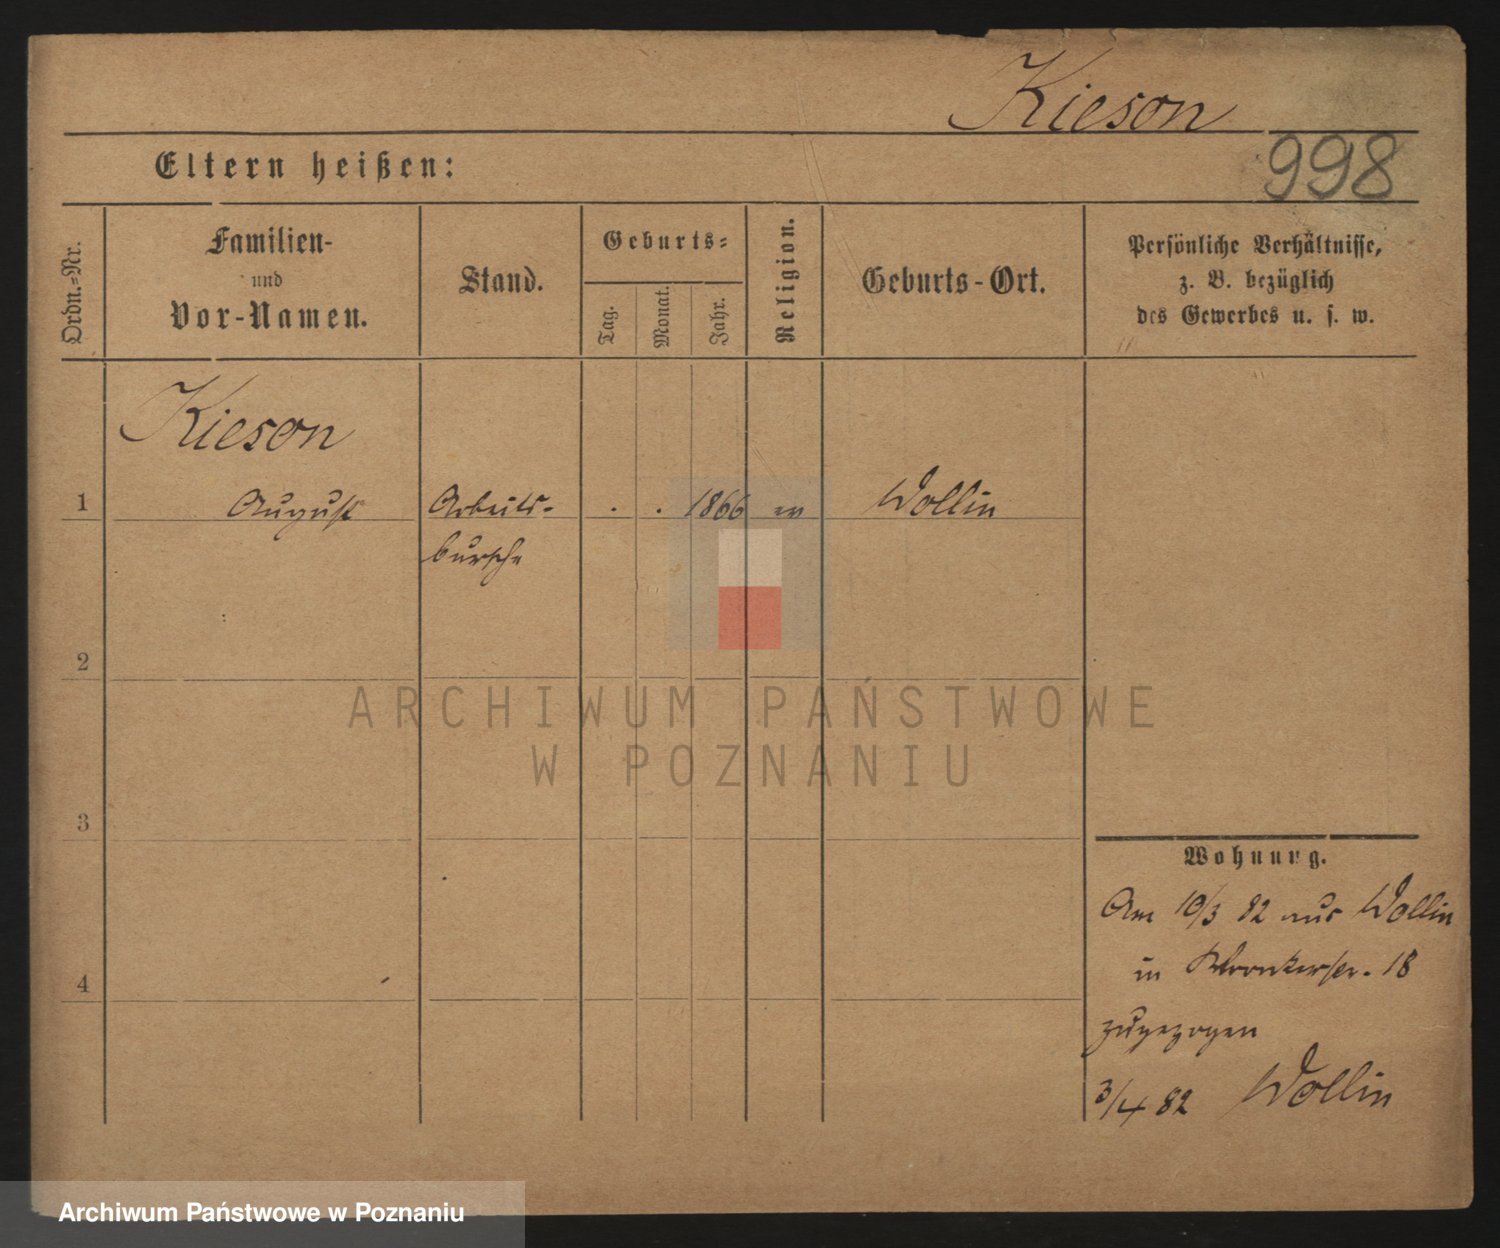 Kieson
998
Eltern heißen:
Ordn.=Nr.
Familien-
und
Vor-Namen.
Stand.
Geburts=
Tag.
Monat.
Jahr.
Religion.
Geburts-Ort.
Persönliche Verhältnisse,
z. B. bezüglich
des Gewerbes u. s. w.
Kieson
1 August Arbeits- . . 1866 ev Wollin
bursche
2
3
4
Wohnung.
Am 10/3 82 aus Wollin
in Wronkerstr. 18
zugezogen
3/4 82 Wollin
ARCHIWUM PAŃSTWOWE
W POZNANIU
Archiwum Państwowe w Poznaniu